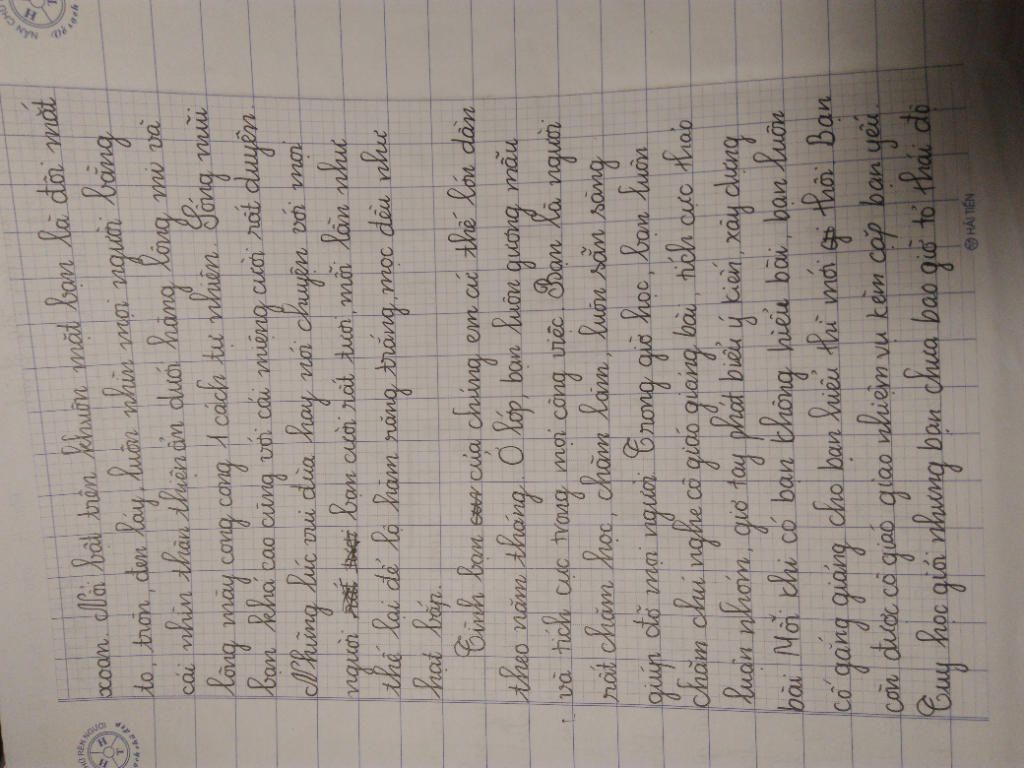 xoan. Nổi bật trên khuôn mặt bạn là đôi mắt
to, tròn, đen láy, luôn nhìn mọi người bằng
cái nhìn thân thiện ẩn dưới hàng lông mi và
lông mày cong cong 1 cách tự nhiên. Sống mũi
bạn khá cao cùng với cái miệng cười rất duyên.
Những lúc vui đùa hay nói chuyện với mọi
người bạn cười rất tươi, mỗi lần như
thế lại để lộ hàm răng trắng, mọc đều như
hạt bắp.
Tình bạn của chúng em cứ thế lớn dần
theo năm tháng. Ở lớp, bạn luôn gương mẫu
và tích cực trong mọi công việc. Bạn là người
rất chăm học, chăm làm, luôn sẵn sàng
giúp đỡ mọi người. Trong giờ học, bạn luôn
chăm chú nghe cô giáo giảng bài, tích cực thảo
luận nhóm, giơ tay phát biểu ý kiến, xây dựng
bài. Mỗi khi có bạn không hiểu bài, bạn luôn
cố gắng giảng cho bạn hiểu thì mới thôi. Bạn
còn được cô giáo giao nhiệm vụ kèm cặp bạn yếu.
Tuy học giỏi nhưng bạn chưa bao giờ tỏ thái độ
HẢI TIẾN